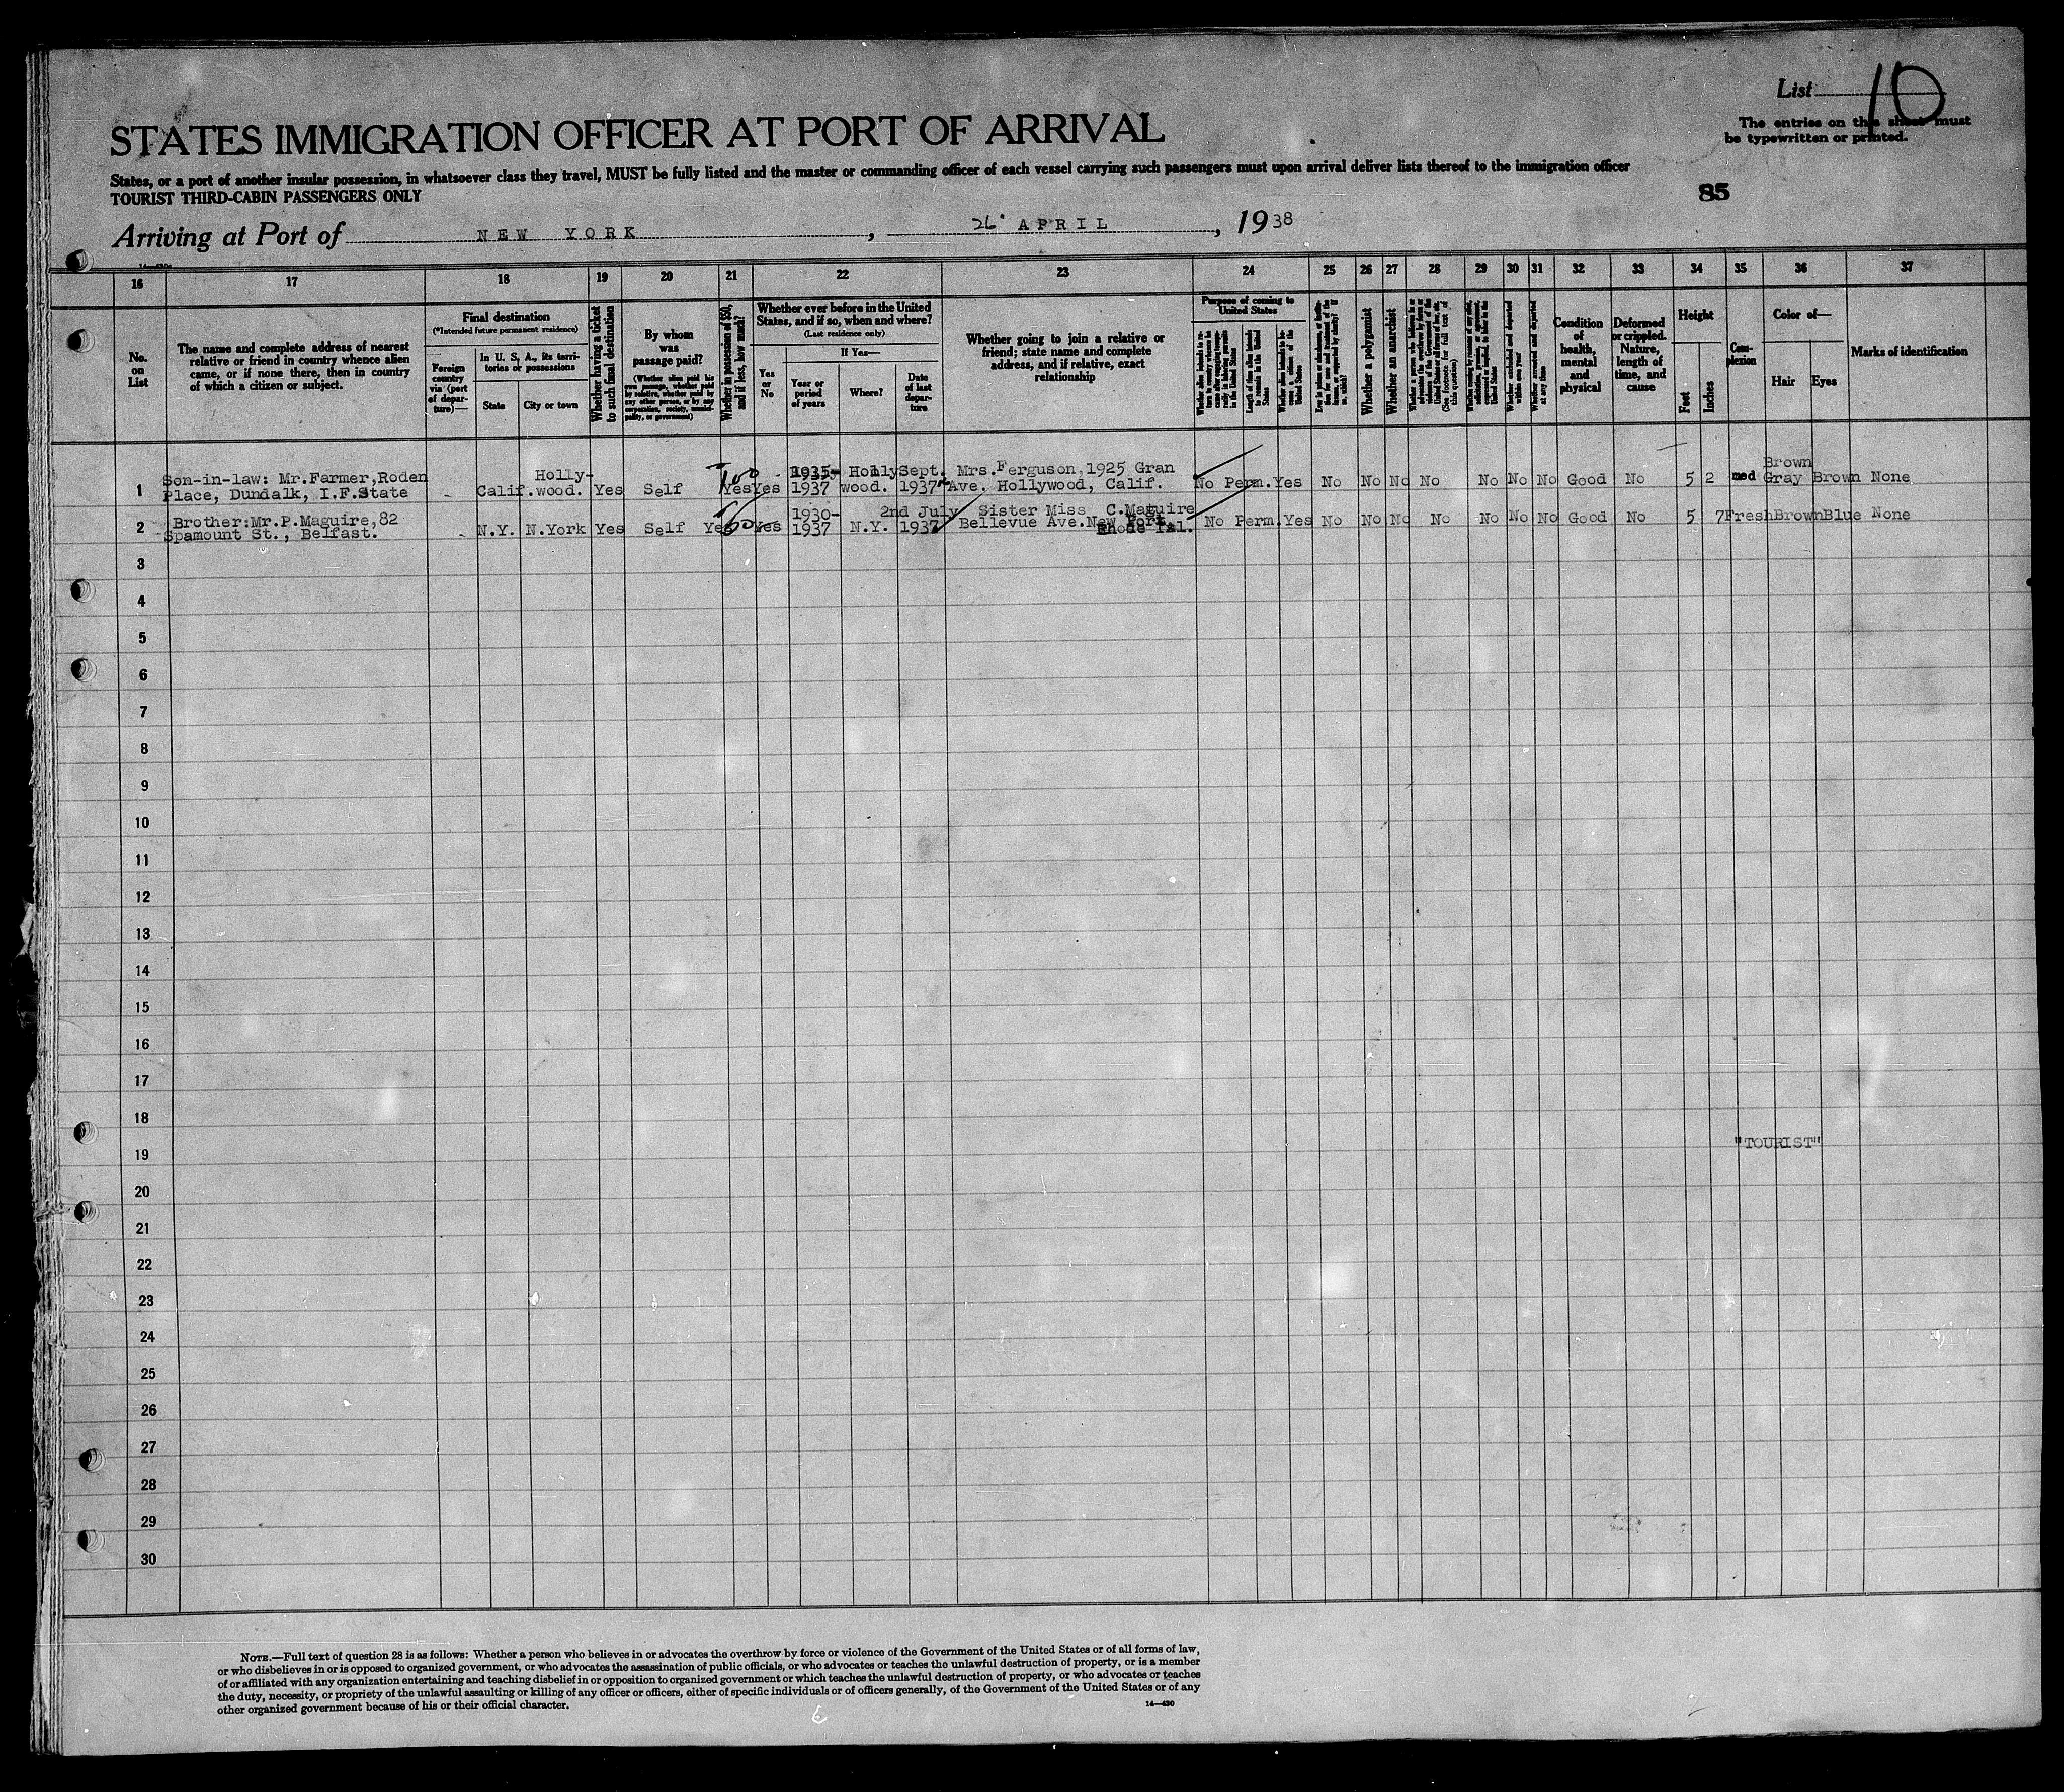 List 10
The entries on this sheet must
be typewritten or printed.
STATES IMMIGRATION OFFICER AT PORT OF ARRIVAL
States, or a port of another insular possession, in whatsoever class they travel, MUST be fully listed and the master or commanding officer of each vessel carrying such passengers must upon arrival deliver lists thereof to the immigration officer
TOURIST THIRD-CABIN PASSENGERS ONLY
85
Arriving at Port of NEW YORK, 26 APRIL, 1938
16 17 18 19 20 21 22 23 24 25 26 27 28 29 30 31 32 33 34 35 36 37
No.
on
List
The name and complete address of nearest
relative or friend in country whence alien
came, or if none there, then in country
of which a citizen or subject.
Final destination
(*Intended future permanent residence)
Foreign
country
via (port
of depar-
ture)—
In U. S. A., its terri-
tories or possessions
State
City or town
Whether having a ticket
to such final destination
By whom
was
passage paid?
(Whether alien paid his
own passage, whether paid
by relative, whether paid by
any other person, or by any
corporation, society, munici-
pality, or government)
Whether in possession of $50,
and if less, how much?
Whether ever before in the United
States, and if so, when and where?
(Last residence only)
Yes
or
No
If Yes—
Year or
period
of years
Where?
Date
of last
depar-
ture
Whether going to join a relative or
friend; state name and complete
address, and if relative, exact
relationship
Purpose of coming to
United States
Length of time alien intends
to remain in the United
States
Whether a polygamist
Whether an anarchist
(See footnote for full text of
this question)
Whether arrested and deported
at any time
Condition
of
health,
mental
and
physical
Deformed
or crippled.
Nature,
length of
time, and
cause
Height
Feet
Inches
Com-
plexion
Color of—
Hair
Eyes
Marks of identification
1 Son-in-law: Mr.Farmer,Roden
Place, Dundalk, I.F.State - Calif. Holly-
wood. Yes Self Yes Yes 1935-
1937 Holly
wood. Sept.
1937 Mrs.Ferguson,1925 Gran
Ave. Hollywood, Calif. No Perm. Yes No No No No No No No Good No 5 2 med Brown
Gray Brown None
2 Brother:Mr.P.Maguire,82
Spamount St., Belfast. - N.Y. N.York Yes Self Yes 60 Yes 1930-
1937 N.Y. 2nd July
1937 Sister Miss C.Maguire
Bellevue Ave.New Port.
Rhode Isl. No Perm. Yes No No No No No No No Good No 5 7 Fresh Brown Blue None
3
4
5
6
7
8
9
10
11
12
13
14
15
16
17
18
"TOURIST"
19
20
21
22
23
24
25
26
27
28
29
30
NOTE.—Full text of question 28 is as follows: Whether a person who believes in or advocates the overthrow by force or violence of the Government of the United States or of all forms of law,
or who disbelieves in or is opposed to organized government, or who advocates the assassination of public officials, or who advocates or teaches the unlawful destruction of property, or is a member
of or affiliated with any organization entertaining and teaching disbelief in or opposition to organized government or which teaches the unlawful destruction of property, or who advocates or teaches
the duty, necessity, or propriety of the unlawful assaulting or killing of any officer or officers, either of specific individuals or of officers generally, of the Government of the United States or of any
other organized government because of his or their official character.
14—430